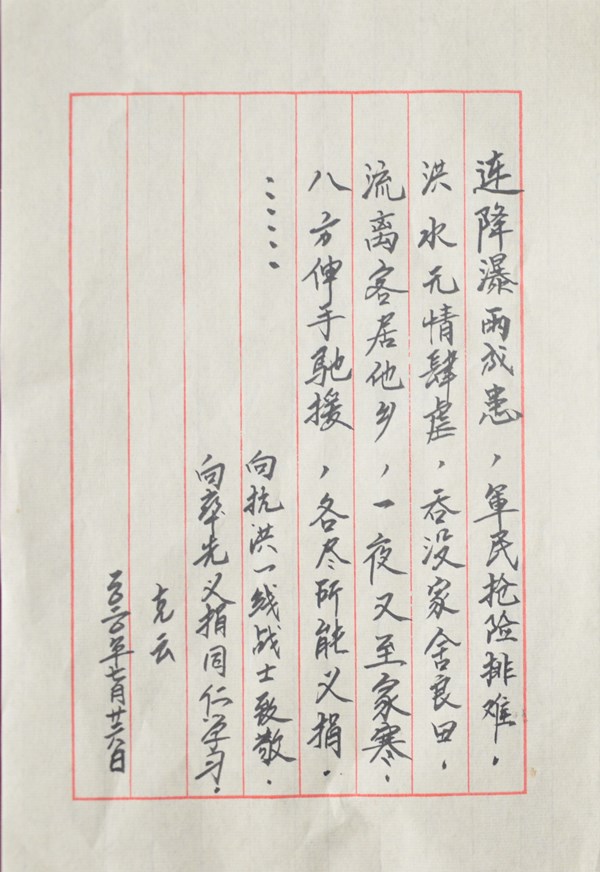 连降瀑雨成患，軍民抢险排难，
洪水无情肆虐，吞没家舍良田，
流离客居他乡，一夜又至家寒，
八方伸手馳援，各尽所能义捐。
……向抗洪一线战士致敬，
向率先义捐同仁学习。
克云
二〇二〇年七月廿六日